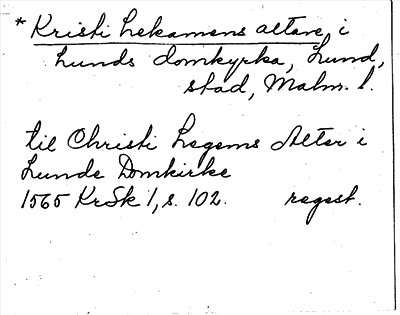 * Kristi Lekamens altare, i
Lunds domkyrka, Lund,
stad, Malm. l.
til Christi Legems Alter i
Lunde Domkirke
1565 KrSk 1, s. 102. regest.